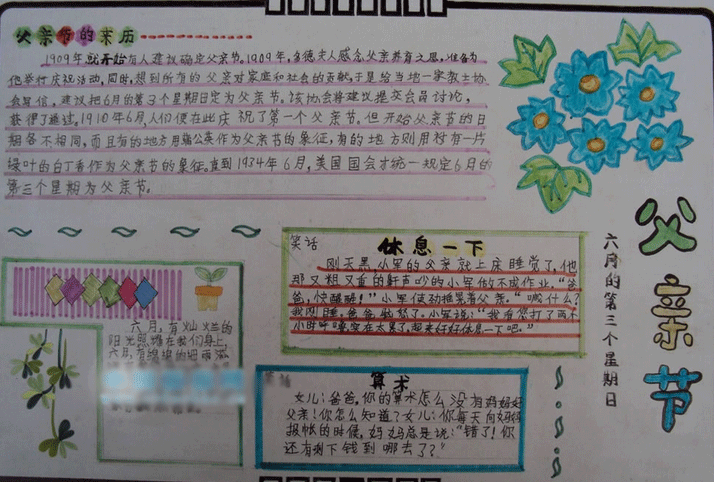 父亲节的来历
1909年就开始有人建议确定父亲节。1909年,多德夫人感念父亲养育之恩,准备为
他举行庆祝活动,同时,想到所有的父亲对家庭和社会的贡献,于是给当地一家教士协
会写信,建议把6月的第3个星期日定为父亲节。该协会将建议提交会员讨论,
获得了通过。1910年6月,人们便在此庆祝了第一个父亲节。但开始父亲节的日
期各不相同,而且有的地方用蒲公英作为父亲节的象征,有的地方则用衬有一片
绿叶的白丁香作为父亲节的象征。直到1934年6月,美国国会才统一规定6月的
第三个星期为父亲节。
父亲节
六月的第三个星期日
笑话
休息一下
刚天黑,小军的父亲就上床睡觉了,他
那又粗又重的鼾声吵的小军做不成作业。“爸
爸,快醒醒!”小军使劲推晃着父亲。“喊什么?
我困”小军说:“我看您打了两个
小时呼噜实在太累了,起来好好休息一下吧。”
六月,有灿烂的
阳光照耀在我们身上,
六月,有绵绵的细雨滋
笑话
算术
女儿:爸爸,你的算术怎么没有妈妈好
父亲:你怎么知道?女儿:你每天向妈妈
报帐的时候,妈妈总是说:“错了!你
还有剩下钱到哪去了?”